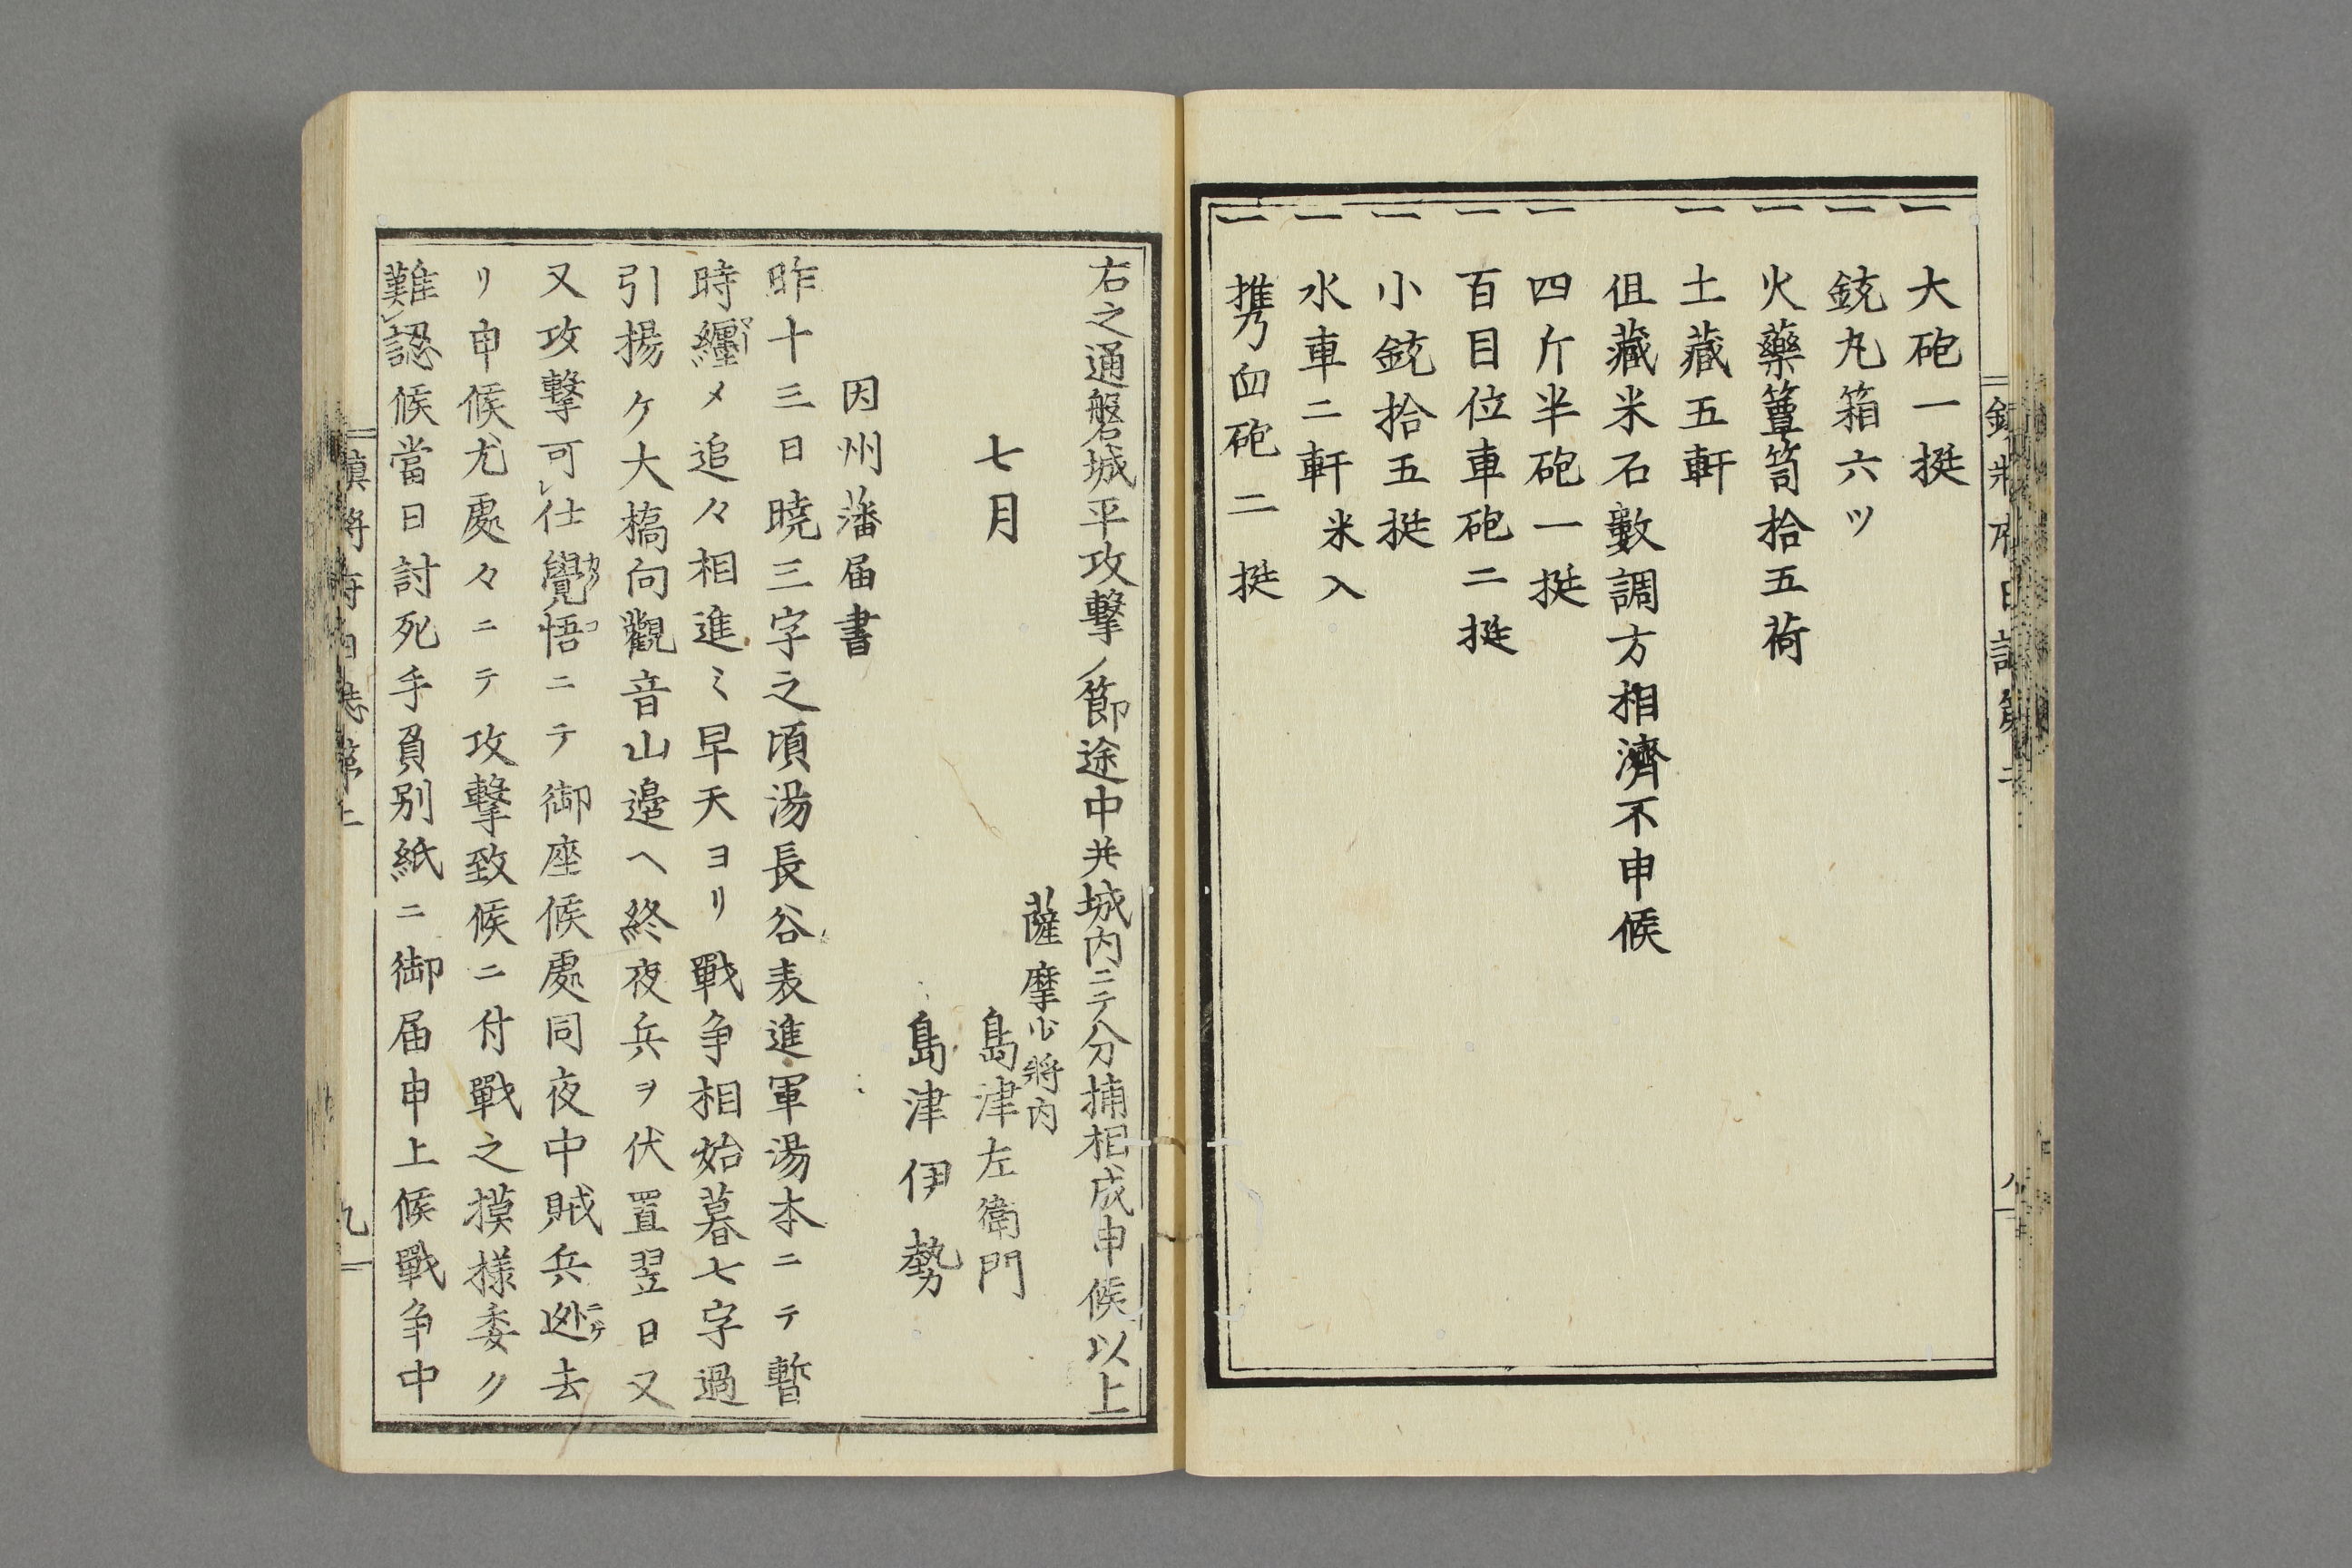 一 大砲一挺
一 銃丸箱六ツ
一 火藥簞笥拾五荷
一 土藏五軒
但藏米石數調方相濟不申候
一 四斤半砲一挺
一 百目位車砲二挺
一 小銃拾五挺
一 水車二軒 米入
一 携臼砲二挺
鎮将府日誌第二
八
右之通磐城平攻撃ノ節途中共城内ニテ分捕相成申候以上
薩摩少將内
七月 島津左衛門
島津伊勢
因州藩届書
昨十三日曉三字之頃湯長谷表進軍湯本ニテ暫
時纏メ追々相進ミ早天ヨリ戰爭相始暮七字過
引揚ケ大槗向觀音山邉ヘ終夜兵ヲ伏置翌日又
又攻撃可レ仕覺悟ニテ御座候處同夜中賊兵迯去
リ申候尤處々ニテ攻撃致候ニ付戰之摸様委ク
難レ認候當日討死手負別紙ニ御届申上候戰爭中
鎮将府日誌第二
九